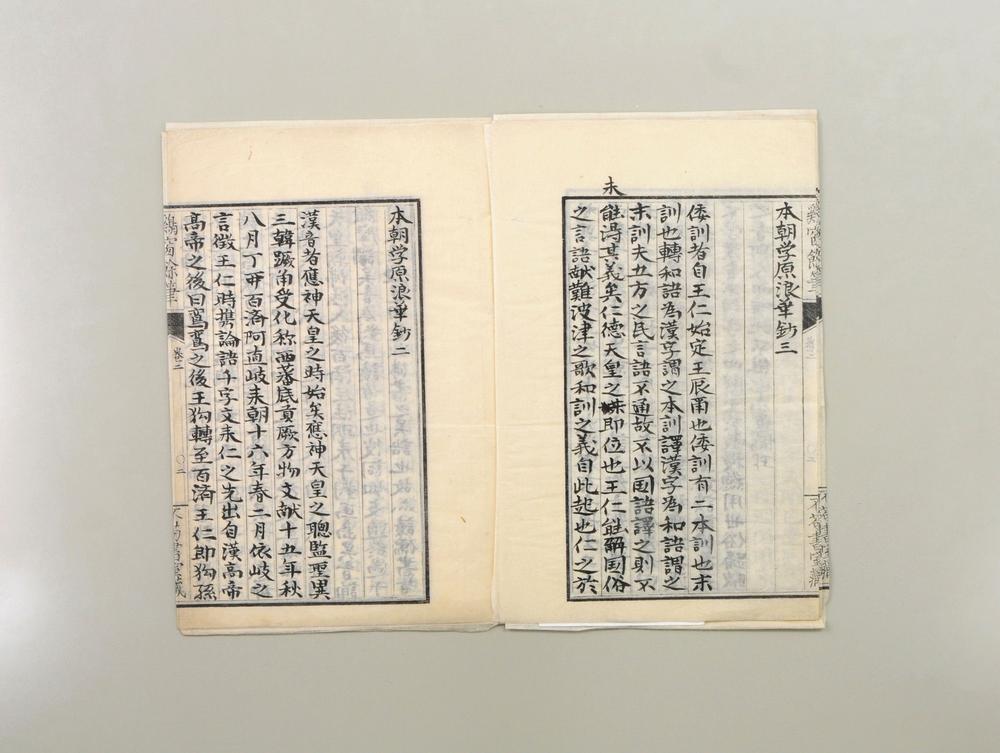 本朝学原浪華鈔三
倭訓者自王仁始定王辰爾也倭訓有二本訓也末
訓也轉和語為漢字謂之本訓譯漢字為和語謂之
末訓夫五方之民言語不通故不以国語譯之則不
未
能得其義矣仁德天皇之即位也王仁能解国俗
之言語献難波津之歌和訓之義自此起也仁之於
本朝学原浪華鈔二
漢音者應神天皇之時始矣應神天皇之聰監聖異
三韓蹶角受化称西蕃底貢厥方物文献十五年秋
八月丁卯百濟阿直岐来朝十六年春二月依岐之
言徴王仁時携論語千字文来仁之先出自漢高帝
高帝之後曰鸞鸞之後王狗轉至百濟王仁即狗孫
鷄窗餘筆
卷二